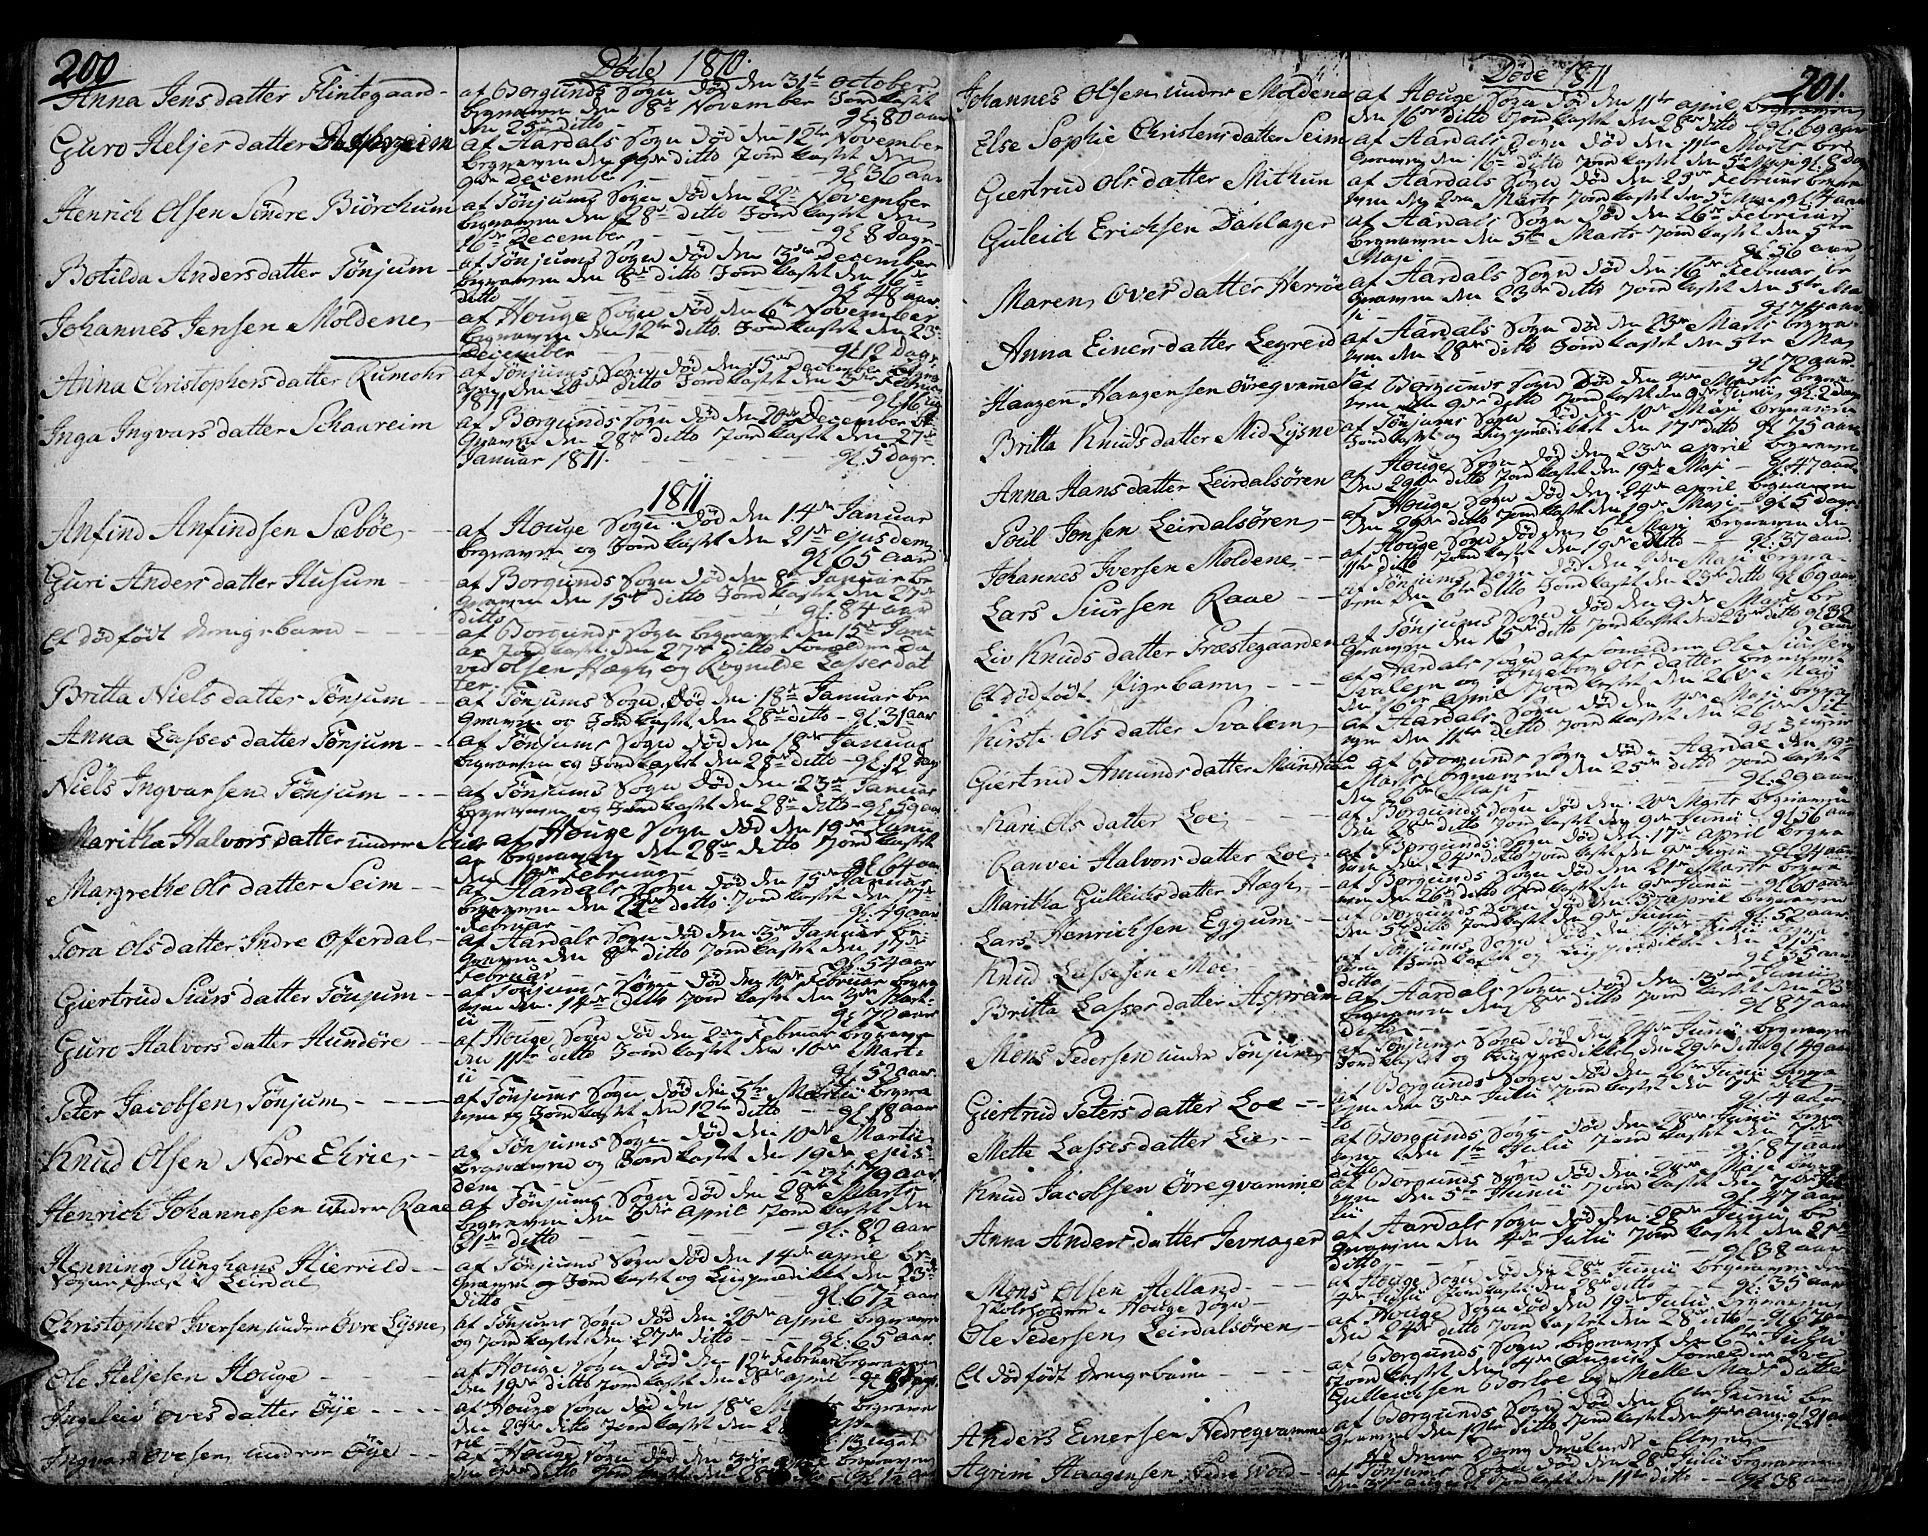 200
Døde 1810.
Anna Jensdatter Flintegaard -
af Borgunds Sogn død den 31te October
begraven den 8de November Jord kastet
den 25de ditto gl: 80 aar
Guro Heljersdatter
af Aardals Sogn død den 12te November
begraven den 19de ditto Jord kastet den
9de December - - - gl: 36 aar
Henrich Olsen Søndre Biörchum
af Tønjums Sogn død den 22de November
begraven den 28de ditto Jord kastet den
16de December - - - gl: 8 Dage
Botilda Andersdatter Tønjum
af Tønjums Sogn død den 3die December
begraven den 8de ditto Jord kastet den 16de
ditto gl: 48 aar
Johannes Jensen Moldene
af Houge Sogn død den 6te November
begraven den 12te ditto Jord kastet den 23de
December - - - gl: 12 Dage
Anna Christophersdatter Rumohr
af Tønjums Sogn død den 15de December begra-
ven den 20de ditto Jord kastet den 3die Februar
1811 gl: 16
Inga Ingvarsdatter Schaureim
af Borgunds Sogn død den 20de December be
graven den 28de ditto Jord kastet den 27de
Januar 1811. - - - gl: 5 Dage.
1811
Anfind Anfindsen Sæbøe - -
af Houge Sogn død den 14de Januar
begraven og Jord kastet den 21de ejusdem
gl: 65 aar
Guri Andersdatter Husum - -
af Borgunds Sogn død den 8de Januar be
graven den 15de ditto Jord kastet den 27de
ditto - - - gl: 84 aar
Et dødfødt drengebarn - - -
af Borgunds Sogn begravet den 15de Janu
ar Jord kastet den 27de ditto Forældre Da
vid Olsen Hægh og Ragnilde Lassesdat
ter.
Britta Nielsdatter Tønjum - -
af Tønjums Sogn død den 18de Januar be
graven og Jord kastet den 28de ditto - gl: 31 aar
Anna Lassesdatter Tønjum - -
af Tønjums Sogn død den 19de Januar
begraven og Jord kastet den 28de ditto - gl: 12 Dage
Niels Ingvarsen Tønjum - - -
af Tønjums Sogn død den 23de Januar
begraven og Jord kastet den 28de ditto - gl: 59 aar
Maritha Halvorsdatter under
af Houge Sogn død den 19de Janu
ar begraven den 28de ditto Jord kastet
den Februar gl: 64 aar
Margrethe Olsdatter Seim - -
af Aardals Sogn død den 15de Januar
begraven den 22de ditto Jord kastet den 17de
Februar - - - gl: 49 aar
Tora Olsdatter Indre Offerdal -
af Aardals Sogn død den Januar be
graven den 8de ditto Jord kastet den 17de
Februar - - - gl: 54 aar
Giertrud Siursdatter Tønjum - -
af Tønjums Sogn død den Februar begra
ven den 14de ditto Jord kastet den Mart
ii gl: 70 aar
Guro Halvorsdatter Hundere -
af Houge Sogn død den 2den Februar begraven
den 11te ditto Jord kastet den 10de Marti
ii gl: 52 aar
Peter Jacobsen Tønjum - - -
af Tønjums Sogn død den 5te Martii begra
ven og Jord kastet den 12te ditto - - gl: 18 aar
Knud Olsen Nedre Ehrie - -
af Tønjums Sogn død den 10de Martii
begraven og Jord kastet den 19de ejus-
dem - - - gl: 79 aar
Henrich Johannesen under Raae
af Tønjums Sogn død den 28de Marts
begraven den 3die April Jord kastet den
21de ditto - - - gl: 82 aar
Henning Junghans Hierrild -
Sogne Præst i Leirdal
af Tønjums Sogn død den 14de april be
gravet og Jord kastet og Liigprædiket den 23de
ditto gl: 67½ aar
Christopher Iversen under Øvre Lysne
af Tønjums Sogn død den 20de april begraven
og Jord kastet den 27de ditto - - gl: 65 aar
Ole Heljesen Houge - -
af Houge Sogn død den 12te Februar begraven
den 19de ditto Jord kastet den 28de april
Ingeleiv Ovesdatter Øye - - -
af Houge Sogn død den 18de begraven
den 23de ditto Jord kastet den
Ingvar Ovesen under Øye - -
af Houge Sogn død den begraven
den 9de ditto Jord kastet den 28de
201.
Døde 1811
Johannes Olsen under Moldene
af Houge Sogn død den 11te april begraven
den 16de ditto Jord kastet den 28de ditto gl: 69 aar
Else Sophie Christensdatter Seim
af Aardals Sogn død den 11te Marts be
graven den 16de ditto Jord kastet den 5te Maji gl: 8 Dage
Giertrud Olsdatter Mithun
af Aardals Sogn død den Februar begra
ven den 2den Marts Jord kastet den 5te Maji gl: 4 aar
Guleich Erichsen Dahlager
af Aardals Sogn død den 26de Februarii
begraven den 5te Marts Jord kastet den 5te
Maji gl: 56 aar
Maren Ovesdatter Herrøe
af Aardals Sogn død den 16de Februar be
graven den 23de ditto Jord kastet den 5te Ma
ji gl: 74 aar
Anna Einersdatter Legreid
af Aardals Sogn død den 23de Marts begra-
ven den 28de ditto Jord kastet den 5te Ma
ji gl: 70 aar
Haagen Haagensen Øvreqvamme
af Borgunds Sogn død den Marts begra
ven den 9de ditto Jord kastet den 9de Junii gl: 2 Dage
Britta Knudsdatter Mid Lysne
af Tønjums Sogn død den 10de Maji begraven
Jord kastet og Liigprædiket den 17de ditto gl: 75 aar
Anna Hansdatter Leirdalsøren
af Houge Sogn død den 23de april begraven
den 29de ditto Jord kastet den 19de Maji - gl: 47 aar
Poul Jonsen Leirdalsøren -
af Houge Sogn død den 24de april begraven
den 29de ditto Jord kastet den 19de Maji - gl: 5 Dage
Johannes Iversen Moldene - -
af Houge Sogn død den 6te Maji begraven den
11te ditto Jord kastet den 19de ditto - - gl: 37 aar
Lars Siursen Raae - -
af Tønjums Sogn død den Maji begra-
ven den 6te ditto Jord kastet den 23de ditto gl: 69 aar
Liv Knudsdatter Præstegaarden
af Tønjums Sogn død den 9de Maji be
graven den 15de ditto Jord kastet den 23de ditto gl: 82
aar
Et dødfødt Pigebarn - - -
af Aardals Sogn af Forældre Ole Siursen
Svalem og Ingeborg Olsdatter begravet
den 6te april Jord kastet den 26de Maji
Kirsti Olsdatter Svalem -
af Aardals Sogn død den Maji begra
ven den 11te ditto Jord kastet den 26de dit
to
Giertrud Amundsdatter
af Borgunds Sogn død i Aardal den 19de
Marts begraven den 25de ditto Jord kastet
den 26de Maji gl: 29 aar
Kari Olsdatter Loe - - -
af Borgunds Sogn død den 20de Marts begraven
den 28de ditto Jord kastet den 9de Junii gl: 56 aar
Ranvei Halvorsdatter Loe -
af Borgunds Sogn død den 17de april begra
ven den 24de ditto Jord kastet den 9de Junii - gl: 24 aar
Maritha Gulleiksdatter Hægh -
af Borgunds Sogn død den 21de Marts begra
ven den 26de ditto Jord kastet den 9de Junii - gl: 60 aar
Lars Henrichsen Eggum - -
af Borgunds Sogn død den april begraven
den 5te ditto Jord kastet den 9de Junii - gl: 52 aar
Knud Lassesen Moe
af Tønjums Sogn død den Junii begra
ven Jord kastet og Liigprædiket den 21de
ditto gl: 55 aar
Britta Lassesdatter Aspreim
af Aardals Sogn død den 3die Junii
begraven den 8de ditto Jord kastet den 23de
ditto gl: 87 aar
Mons Pedersen under Tønjum
af Tønjums Sogn død den 24de Junii begraven
Jord kastet og Liigprædiket den 29de ditto gl: 49 aar
Giertrud Petersdatter Loe - -
af Borgunds Sogn død den 26de Junii begra
ven den 3die Julii Jord kastet den 7de dit
to gl: 4 aar
Mette Lassesdatter Lie - -
af Borgunds Sogn død den 28de Junii begra
ven den 1te Julii Jord kastet den 7de
ditto gl: 87 aar
Knud Jacobsen Øvreqvamme
af Borgunds Sogn død den 28de Maji begra
ven den 5te Junii Jord kastet den 7de Ju
lii gl: 47 aar
Anna Andersdatter Jevnager
af Aardals Sogn død den 28de Junii be
graven den 4de Julii Jord kastet den 21de
ditto - - - gl: 38 aar
Mons Olsen Helland - - -
Skoleholder i Houge Sogn -
af Houge Sogn død den 28de Junii begraven den
4de Julii Jord kastet den 28de ditto - gl: 35 aar
Ole Pedersen Leirdalsøren -
af Houge Sogn død den 19de Julii begraven
den 24de ditto Jord kastet den 28de ditto - gl: 67 aar
Et dødfødt drengebarn - - -
af Borgunds Sogn begravet den 6te Julii
Jord kastet den 4de august Forældre
Gulleichsen Borloe og Mette Madsdatter
Anders Einersen Nedreqvamme
af Borgunds Sogn død den 6te Junii be
graven den 12te ditto Jord kastet den 4de aug: gl: 21 aar
Agrim Haagensen Wold -
af Tønjums Sogn død den 28de Julii begraven
den 3die august Jord kastet den 11te ditto - - gl: 38 aar